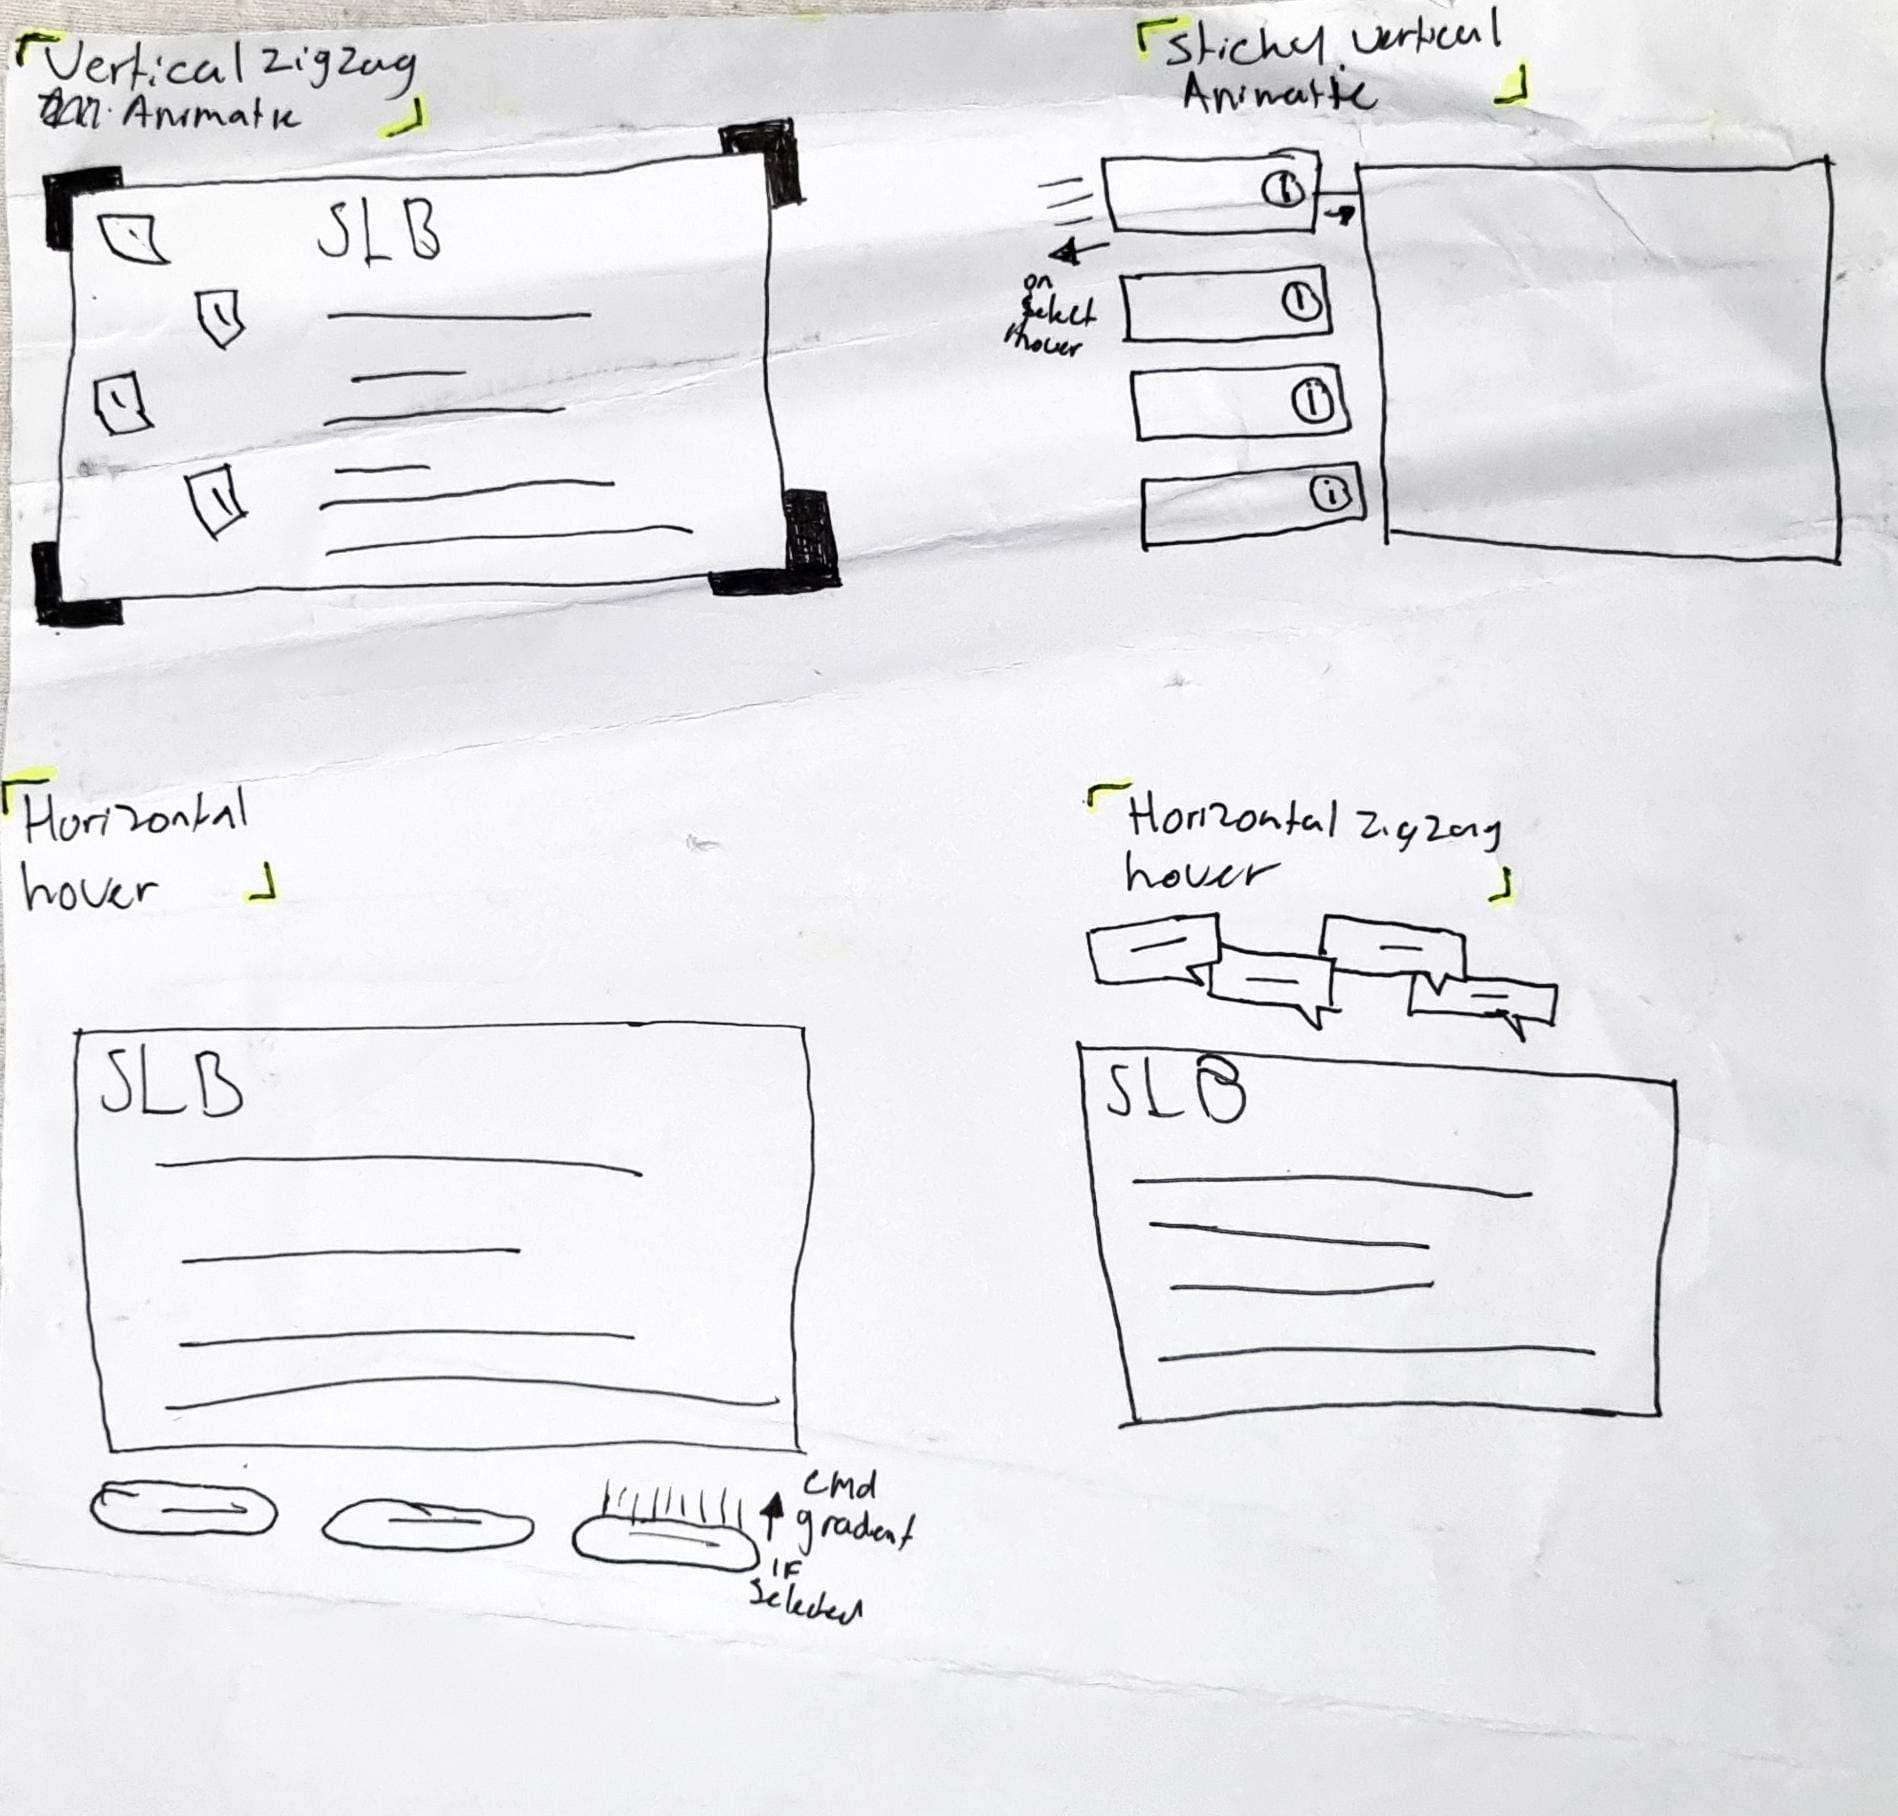 Vertical zigzag
Animatic
SLB
Sticky vertical
Animatic
i
on
select
hover
i
i
i
Horizontal
hover
SLB
cmd
gradient
if
selected
Horizontal zigzag
hover
SLB